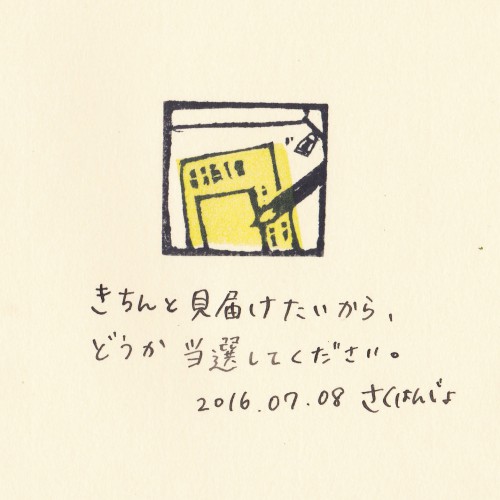 きちんと見届けたいから、
どうか当選してください。
2016.07.08 さくはんじょ